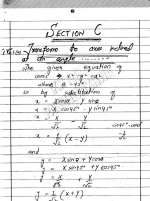 SECTION C
Transform to axes inclined
at an angle
The given equation of
cond x² - y² = a²
where θ = 45°
so by substitution of
x = xcosθ - y sinθ
x = x cos45° - y sin45°
x = x/√2 - y/√2
x = 1/√2 (x - y)
and
y = x sinθ + y cosθ
y = x sin45° + y cos45°
y = x/√2 + y/√2
y = 1/√2 (x + y)